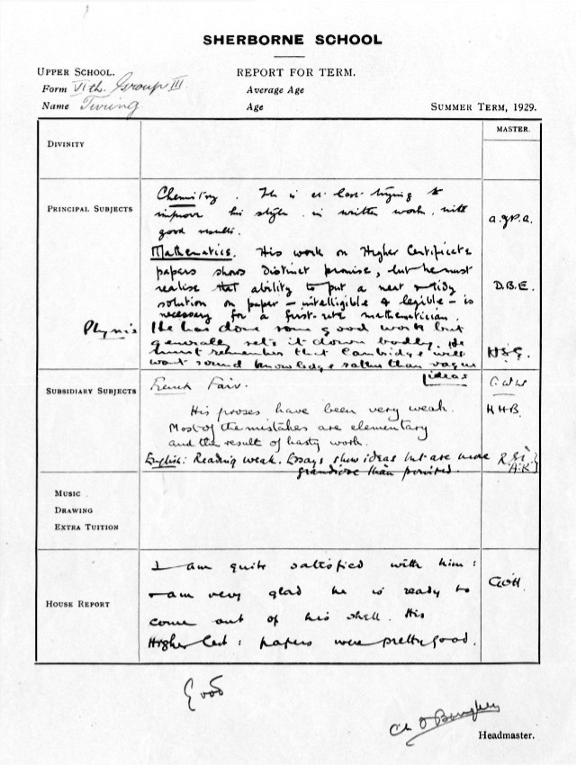 SHERBORNE SCHOOL
UPPER SCHOOL. REPORT FOR TERM.
Form VIth. Group III. Average Age
Name Turing Age SUMMER TERM, 1929.
MASTER.
DIVINITY
PRINCIPAL SUBJECTS Chemistry. He is at last trying to
improve his style in written work, with
good results. a.J.P.a.
Mathematics. His work on Higher Certificate
papers shows distinct promise, but he must
realise that ability to put a neat & tidy D.B.E.
solution on paper – intelligible & legible – is
necessary for a first-rate mathematician.
Physics He has done some good work but
generally sets it down badly. He
must remember that Cambridge will H.S.G.
want sound knowledge rather than vague
ideas
SUBSIDIARY SUBJECTS French Fair.
His proses have been very weak. H H B.
Most of the mistakes are elementary
and the result of hasty work.
English: Reading weak. Essays show ideas but are more
grandiose than A.K
MUSIC
DRAWING
EXTRA TUITION
I am quite satisfied with him:
I am very glad he is ready to
HOUSE REPORT come out of his shell. His
Higher Cert: papers were pretty good.
Good
Headmaster.